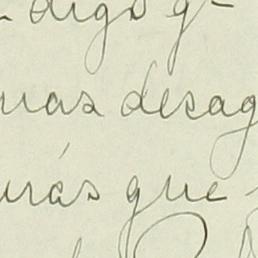 digo q-
mas desag
urás que-